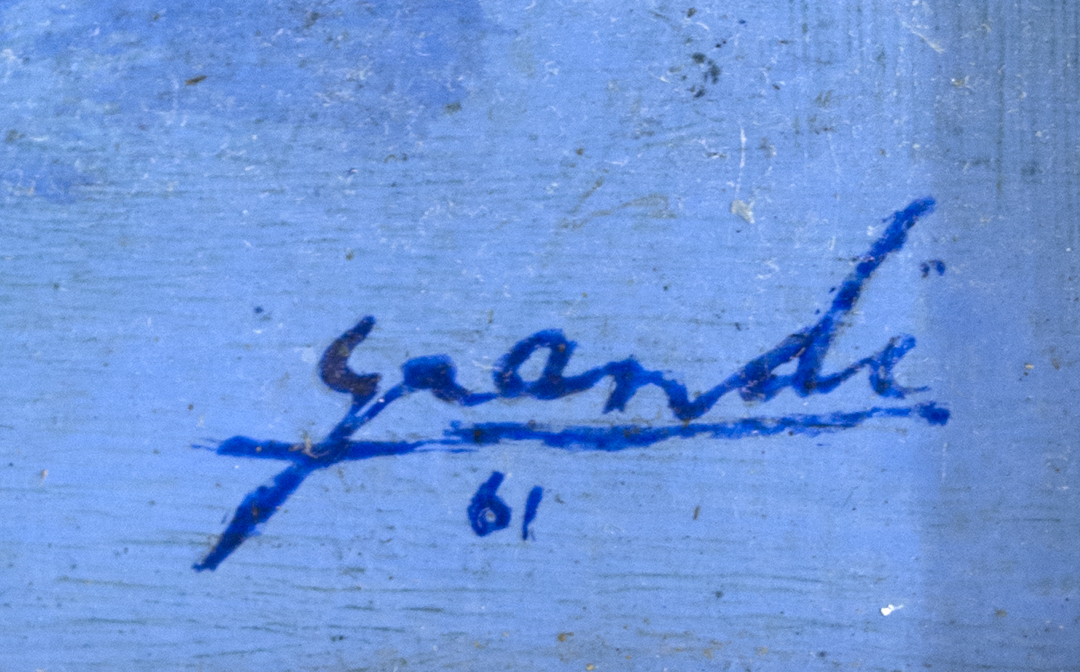 grandé
61